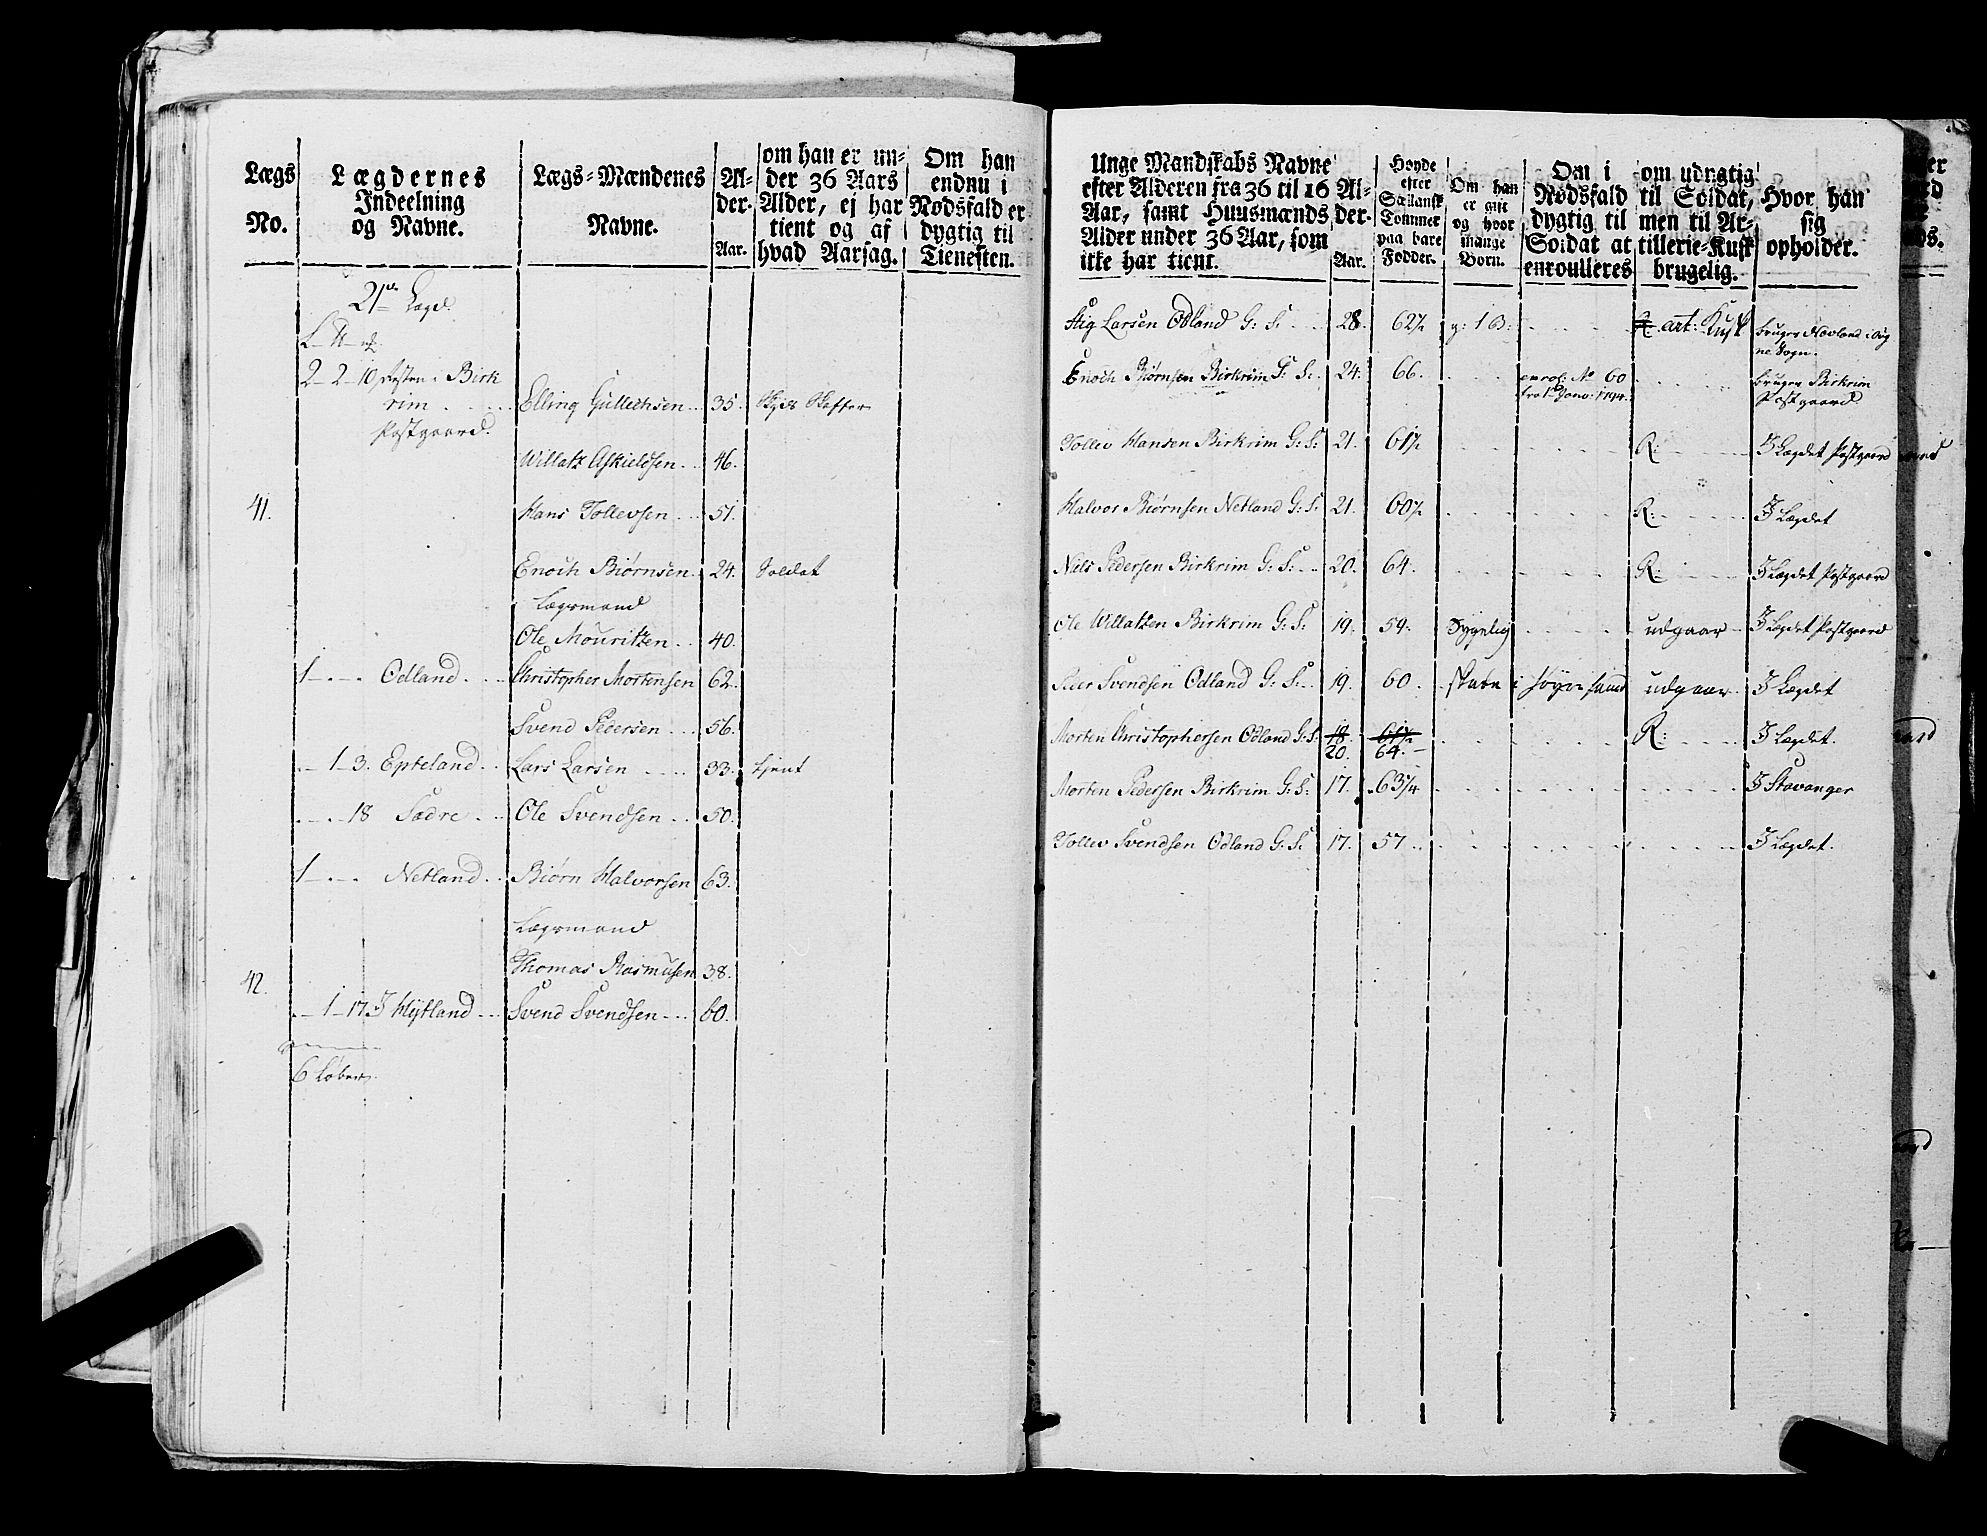 Lægs No.
Lægdernes Indeelning og Navne.
Lægs-Mændenes Navne.
Al-der. Aar.
om han er un-der 36 Aars Alder, ej har tient og af hvad Aarsag.
Om han endnu i Nødsfald er dygtig til Tienesten.
21de Lægd.
2 - 2 - 10 Birk
rim . . . Elling Gullechsen . . 35.
Postgaard.
Willatz Askieldsen . . 46.
41. Hans Tollevsen . . 51.
Enoch Biørnsen . 24. Soldat
Lægsmand
Ole Mouritzen . . 40.
1 - . - . Odland . . . Christopher Mortensen 62.
Svend Pedersen . . . 56.
. - 1 - 3. Epteland . . Lars Larsen . . . . 33. tjent
. - . - 18 Sædre . . . Ole Svendsen . . 50.
1 - . - . Netland . . Biørn Halvorsen 63.
Lægsmand
Thomas Rasmusen 38.
42.
. - 1 - 17 Hytland . . . Svend Svendsen . . . 60.
6 Løber.
Unge Mandskabs Navne efter Alderen fra 36 til 16 Aar, samt Huusmænds Alder under 36 Aar, som ikke har tient.
Al-der. Aar.
Høyde efter Sællansk Tommer paa bare Fødder.
Om han er gift og hvor mange Børn.
Om i Nødsfald dygtig til Soldat at enroulleres
om udygtig til Soldat, men til Ar-tillerie-Kusk brugelig.
Hvor han sig opholder.
Stig Larsen Odland G: S: . . . 28. 62½ g: 1 B: . . . . art: Kusk bruger
ne Sogn.
Enoch Biørnsen Birkrim G: S: . 24. 66. . . . enrol: No 60 . . . . . bruger Birkrim
fra 1 Janv: 1794. Postgaard.
Tollev Hansen Birkrim G: S: 21. 61½ . . . . . . R: . . . . I Lægdet Postgaard
Halvor Biørnsen Netland G: S: 21. 60½ . . . . . . R: . . . . I Lægdet
Niels Pedersen Birkrim G: S: . . . 20. 64. . . . . . R: . . . . I Lægdet Postgaard
Ole Willatzen Birkrim G: S: 19. 59. Sygelig . . . . udgaar . . I Lægdet Postgaard
Peder Svendsen Odland G: S: . . 19. 60. udgaar . . I Lægdet
Morten Christophersen Odland G: S: 18 61½ . . . . . . R: . . . . I Lægdet.
20. 64.
Morten Pedersen Birkrim G: S: 17. 63¼ . . . . . . . . . I Stavanger
Tollev Svendsen Odland G: S: 17. 57 . . . . . . . . . . I Lægdet.